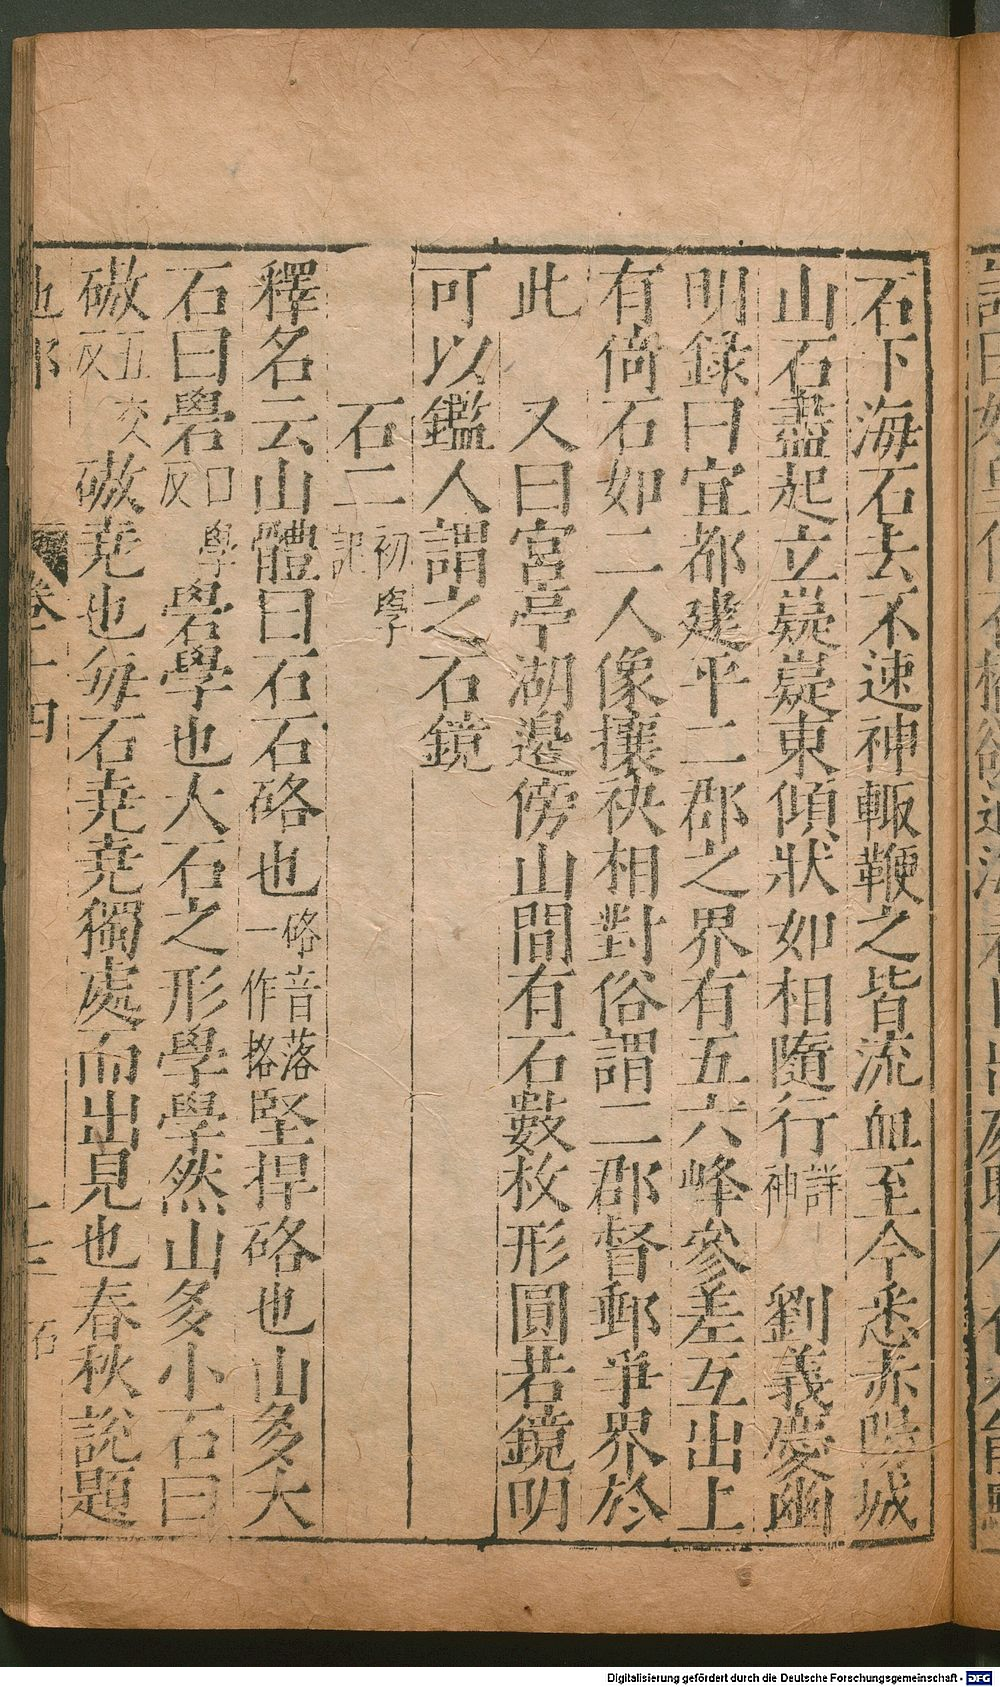 石下海石去不速神輙鞭之皆流血至今悉赤陽城
山石盡起立嶷嶷東傾狀如相隨行詳神　劉義慶幽
明錄曰宜都建平二郡之界有五六峰參差互出上
有倚石如二人像攘袂相對俗謂二郡督郵爭界於
此　又曰宮亭湖邉傍山間有石數枚形圓若鏡明
可以鑑人謂之石鏡
石二初學記
釋名云山體曰石石硌也硌音落一作㧻堅捍硌也山多大
石曰礐口學反礐學也大石之形學學然山多小石曰
磝五交反磝堯也每石堯堯獨處而出見也春秋說題
地部　卷二四　十三
Digitalisierung gefördert durch die Deutsche Forschungsgemeinschaft - DFG